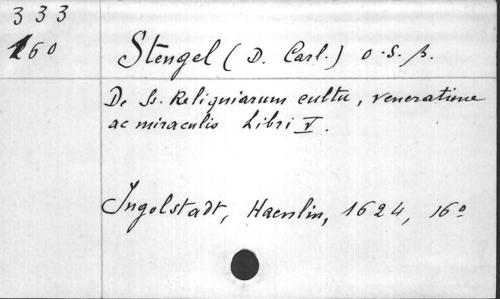 333
160
Stengel (D. Carl.) O.S.B.
De Ss. Reliquiarum cultu, veneratione
ac miraculis Libri V.
Ingolstadt, Haenlin, 1624, 16º